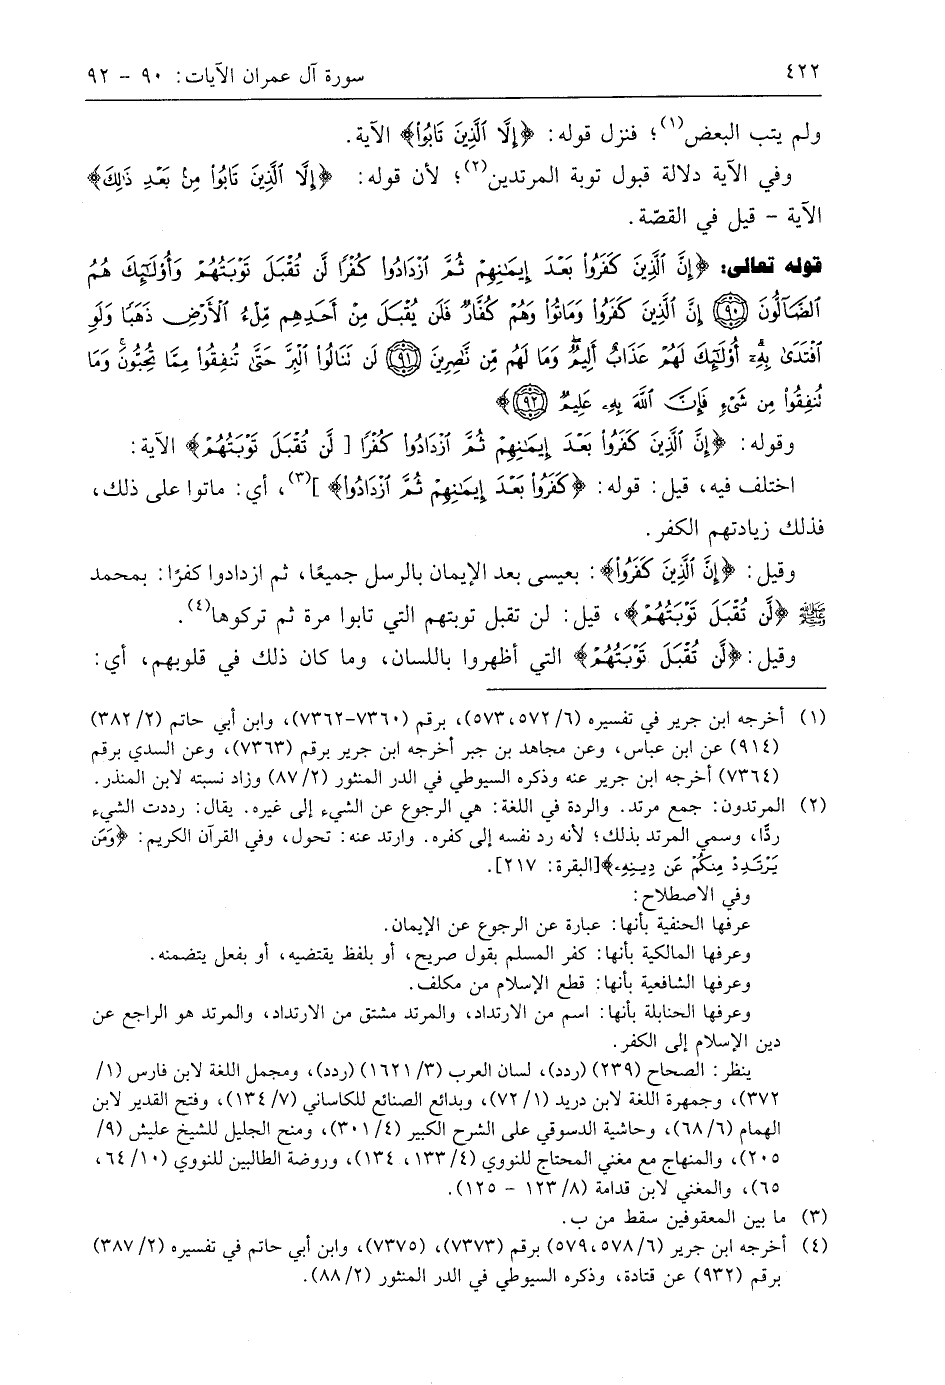 ٤٢٢ سورة آل عمران الآيات: ٩٠ – ٩٢
ولم يتب البعض(١)؛ فنزل قوله: ﴿إِلَّا ٱلَّذِينَ تَابُوا۟﴾ الآية.
وفي الآية دلالة قبول توبة المرتدين(٢)؛ لأن قوله: ﴿إِلَّا ٱلَّذِينَ تَابُوا۟ مِنۢ بَعْدِ ذَٰلِكَ﴾
الآية – قيل في القصّة.
قوله تعالى: ﴿إِنَّ ٱلَّذِينَ كَفَرُوا۟ بَعْدَ إِيمَـٰنِهِمْ ثُمَّ ٱزْدَادُوا۟ كُفْرًا لَّن تُقْبَلَ تَوْبَتُهُمْ وَأُو۟لَـٰٓئِكَ هُمُ
ٱلضَّآلُّونَ ۝٩٠ إِنَّ ٱلَّذِينَ كَفَرُوا۟ وَمَاتُوا۟ وَهُمْ كُفَّارٌ فَلَن يُقْبَلَ مِنْ أَحَدِهِم مِّلْءُ ٱلْأَرْضِ ذَهَبًا وَلَوِ
ٱفْتَدَىٰ بِهِۦٓ أُو۟لَـٰٓئِكَ لَهُمْ عَذَابٌ أَلِيمٌ وَمَا لَهُم مِّن نَّـٰصِرِينَ ۝٩١ لَن تَنَالُوا۟ ٱلْبِرَّ حَتَّىٰ تُنفِقُوا۟ مِمَّا تُحِبُّونَ وَمَا
تُنفِقُوا۟ مِن شَىْءٍ فَإِنَّ ٱللَّهَ بِهِۦ عَلِيمٌ ۝٩٢﴾
وقوله: ﴿إِنَّ ٱلَّذِينَ كَفَرُوا۟ بَعْدَ إِيمَـٰنِهِمْ ثُمَّ ٱزْدَادُوا۟ كُفْرًا [ لَّن تُقْبَلَ تَوْبَتُهُمْ﴾ الآية:
اختلف فيه، قيل: قوله: ﴿كَفَرُوا۟ بَعْدَ إِيمَـٰنِهِمْ ثُمَّ ٱزْدَادُوا۟﴾ ](٣)، أي: ماتوا على ذلك،
فذلك زيادتهم الكفر.
وقيل: ﴿إِنَّ ٱلَّذِينَ كَفَرُوا۟﴾: بعيسى بعد الإيمان بالرسل جميعًا، ثم ازدادوا كفرًا: بمحمد
ﷺ ﴿لَّن تُقْبَلَ تَوْبَتُهُمْ﴾، قيل: لن تقبل توبتهم التي تابوا مرة ثم تركوها(٤).
وقيل: ﴿لَّن تُقْبَلَ تَوْبَتُهُمْ﴾ التي أظهروا باللسان، وما كان ذلك في قلوبهم، أي:
(١) أخرجه ابن جرير في تفسيره (٦/ ٥٧٢، ٥٧٣)، برقم (٧٣٦٠-٧٣٦٢)، وابن أبي حاتم (٢/ ٣٨٢)
(٩١٤) عن ابن عباس، وعن مجاهد بن جبر أخرجه ابن جرير برقم (٧٣٦٣)، وعن السدي برقم
(٧٣٦٤) أخرجه ابن جرير عنه وذكره السيوطي في الدر المنثور (٢/ ٨٧) وزاد نسبته لابن المنذر.
(٢) المرتدون: جمع مرتد. والردة في اللغة: هي الرجوع عن الشيء إلى غيره. يقال: رددت الشيء
ردًّا، وسمي المرتد بذلك؛ لأنه رد نفسه إلى كفره. وارتد عنه: تحول، وفي القرآن الكريم: ﴿وَمَن
يَرْتَدِدْ مِنكُمْ عَن دِينِهِۦ﴾[البقرة: ٢١٧].
وفي الاصطلاح:
عرفها الحنفية بأنها: عبارة عن الرجوع عن الإيمان.
وعرفها المالكية بأنها: كفر المسلم بقول صريح، أو بلفظ يقتضيه، أو بفعل يتضمنه.
وعرفها الشافعية بأنها: قطع الإسلام من مكلف.
وعرفها الحنابلة بأنها: اسم من الارتداد، والمرتد مشتق من الارتداد، والمرتد هو الراجع عن
دين الإسلام إلى الكفر.
ينظر: الصحاح (٢٣٩) (ردد)، لسان العرب (٣/ ١٦٢١) (ردد)، ومجمل اللغة لابن فارس (١/
٣٧٢)، وجمهرة اللغة لابن دريد (١/ ٧٢)، وبدائع الصنائع للكاساني (٧/ ١٣٤)، وفتح القدير لابن
الهمام (٦/ ٦٨)، وحاشية الدسوقي على الشرح الكبير (٤/ ٣٠١)، ومنح الجليل للشيخ عليش (٩/
٢٠٥)، والمنهاج مع مغني المحتاج للنووي (٤/ ١٣٣، ١٣٤)، وروضة الطالبين للنووي (١٠/ ٦٤،
٦٥)، والمغني لابن قدامة (٨/ ١٢٣ – ١٢٥).
(٣) ما بين المعقوفين سقط من ب.
(٤) أخرجه ابن جرير (٦/ ٥٧٨، ٥٧٩) برقم (٧٣٧٣)، (٧٣٧٥)، وابن أبي حاتم في تفسيره (٢/ ٣٨٧)
برقم (٩٣٢) عن قتادة، وذكره السيوطي في الدر المنثور (٢/ ٨٨).